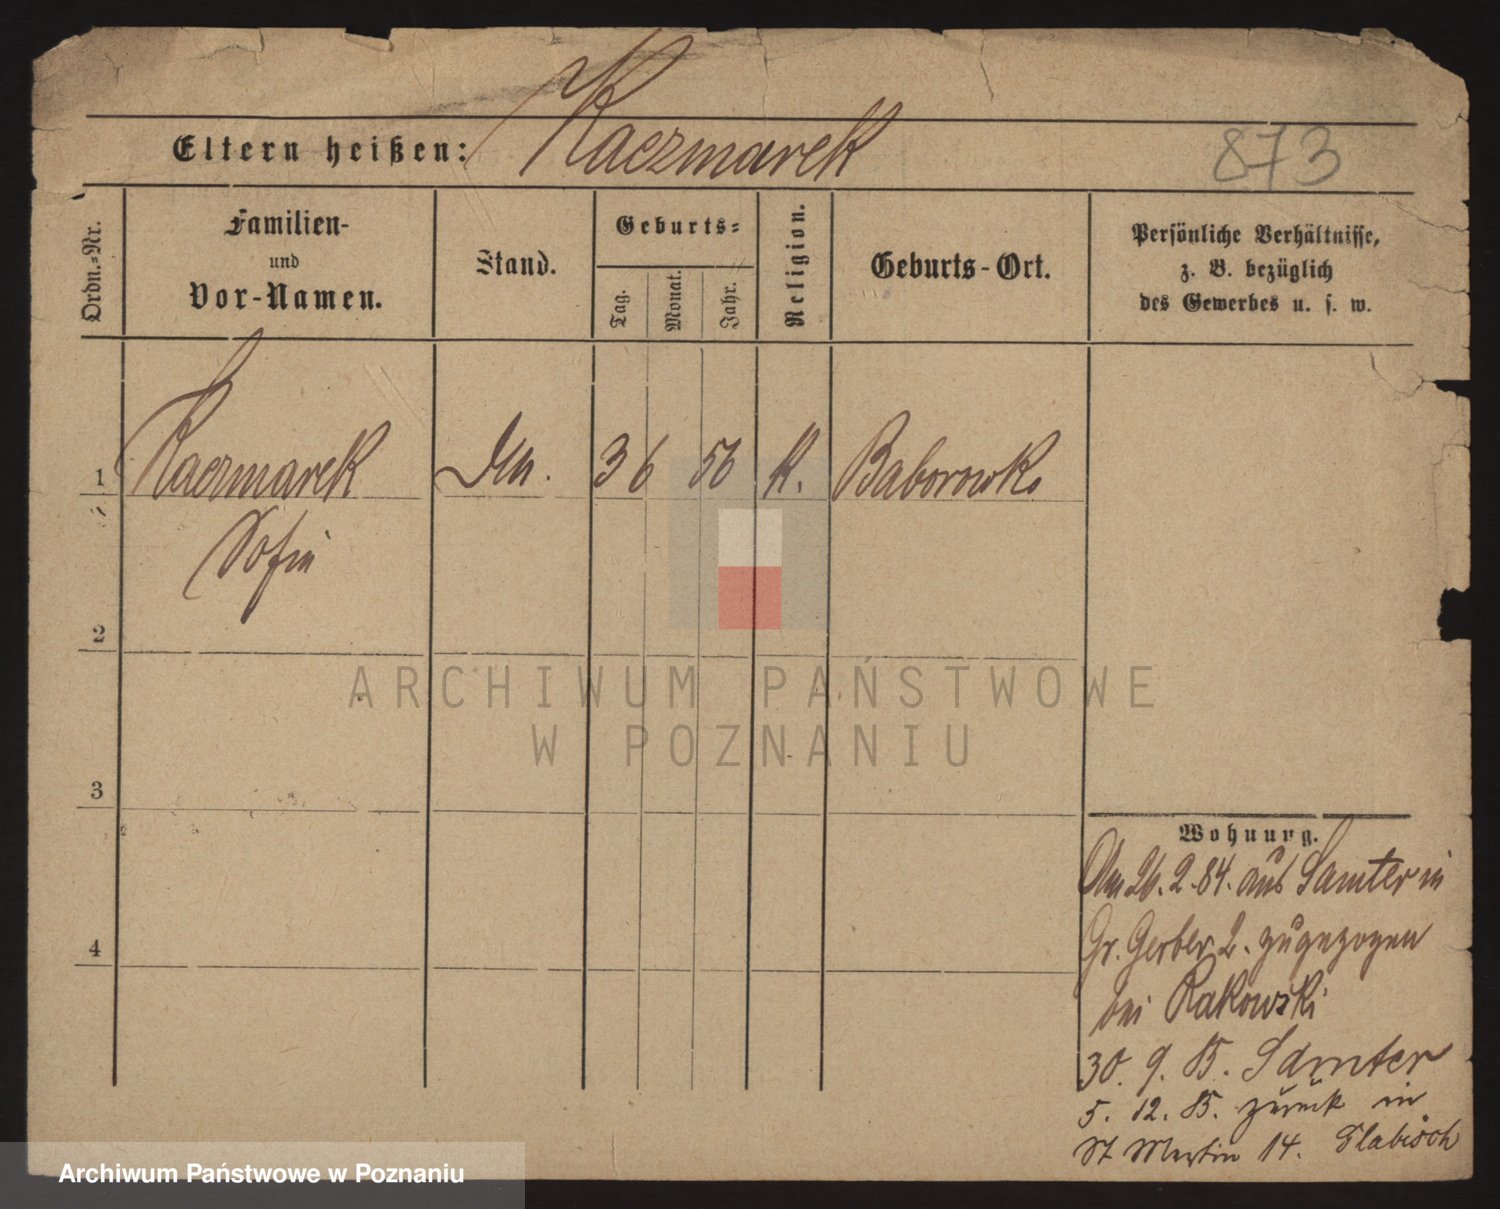 Eltern heißen: Kaczmarek
873
Ordn.=Nr.
Familien-
und
Vor-Namen.
Stand.
Geburts=
Tag.
Monat.
Jahr.
Religion.
Geburts-Ort.
Persönliche Verhältnisse,
z. B. bezüglich
des Gewerbes u. s. w.
1 Kaczmarek 3 6 56 K. Baborowko
Sofie
2
ARCHIWUM PAŃSTWOWE
W POZNANIU
3
4
Wohnung.
Am 26.2.84. aus Samter in
Gr. Gerber 2. zugezogen
bei Rakowski
30. 9. 85. Samter
5. 12. 85. zurück in
St Martin 14. Slabisch
Archiwum Państwowe w Poznaniu